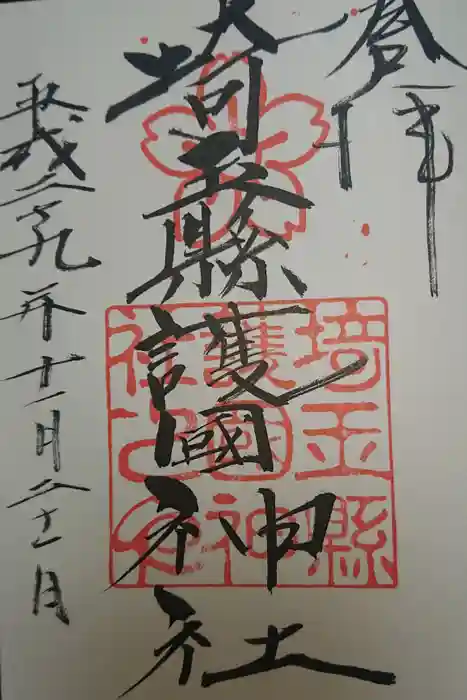 奉拝
埼玉縣護國神社
平成二十九年十一月二十一日
埼玉縣
護國神
社之印